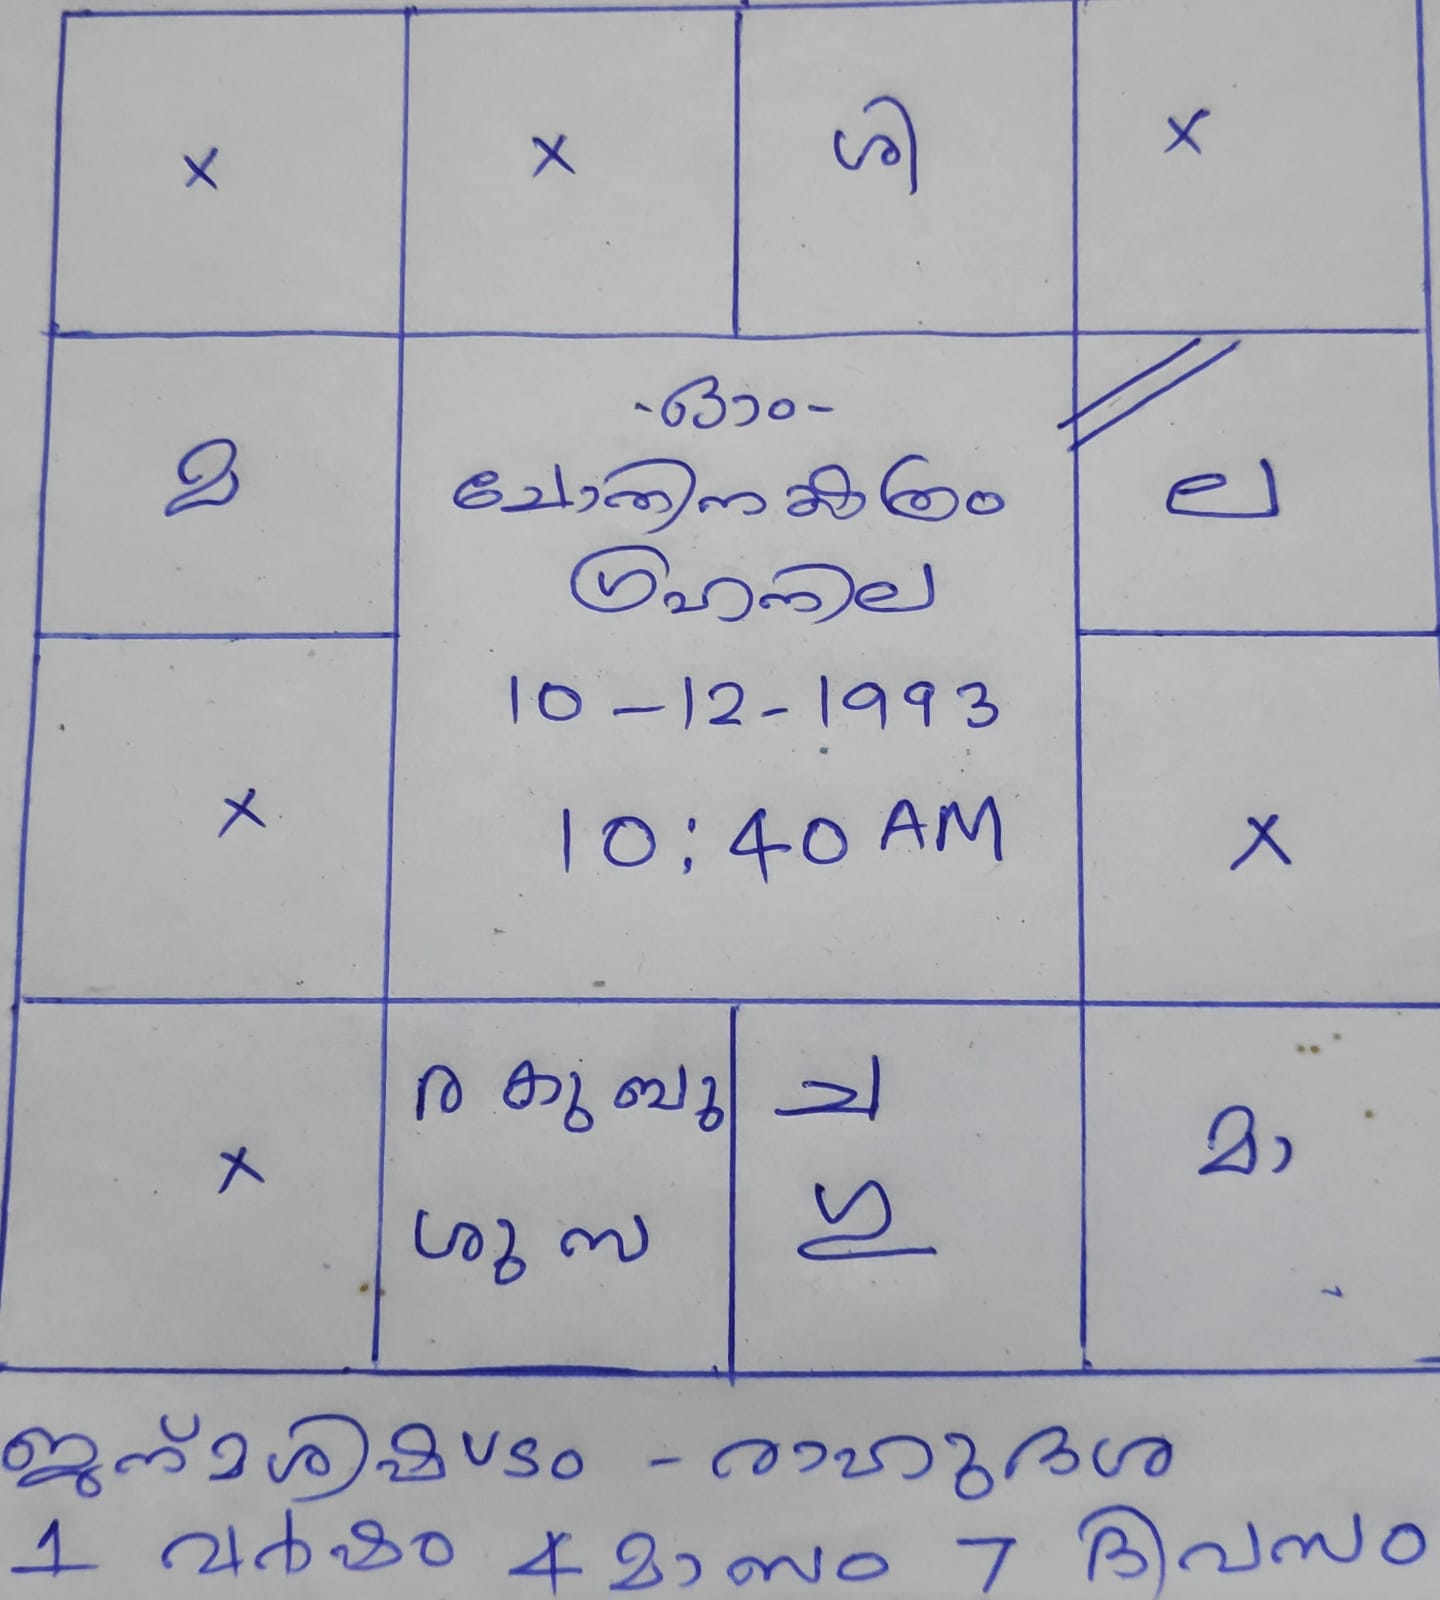 x x ശി x
-ഓം-
മ ല
ചോതിനക്ഷത്രം
ഗ്രഹനില
10-12-1993
10:40 AM
x x
ര കു ബു ച
മാ
x
ശു സ ഗു
ജന്മശിഷ്ടം - രാഹുദശ
1 വർഷം 4 മാസം 7 ദിവസം